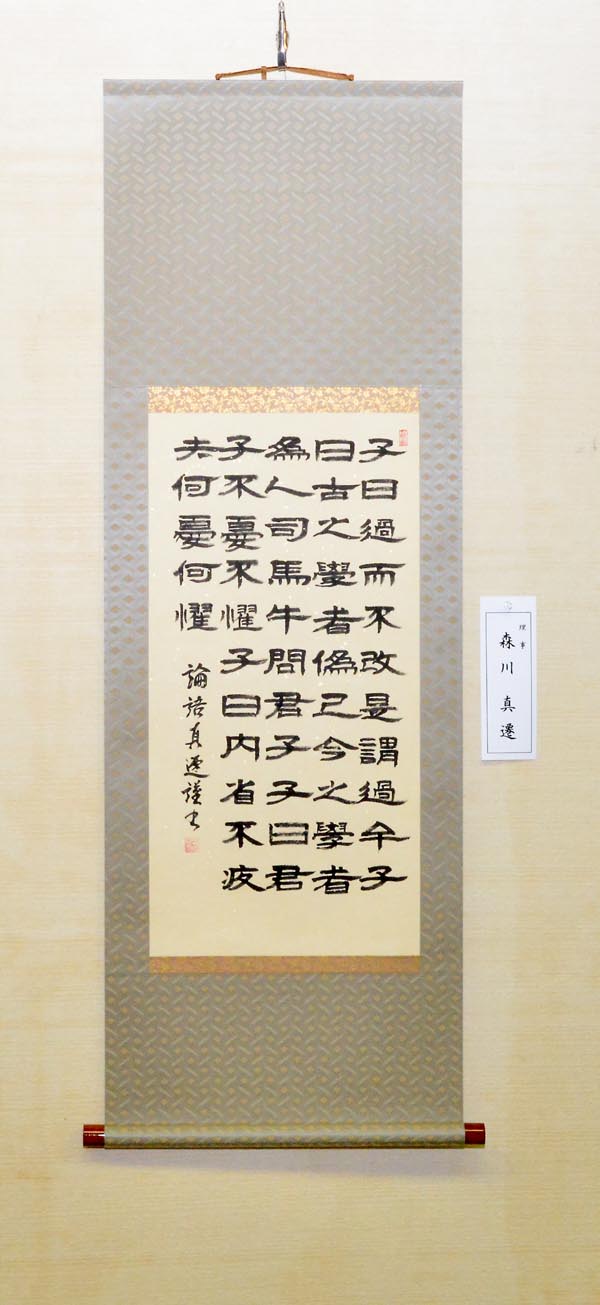 子曰過而不改是謂過矣子
曰古之學者為己今之學者
為人司馬牛問君子子曰君
子不憂不懼子曰内省不疚
夫何憂何懼
論語真遷謹书
理事
森川真遷